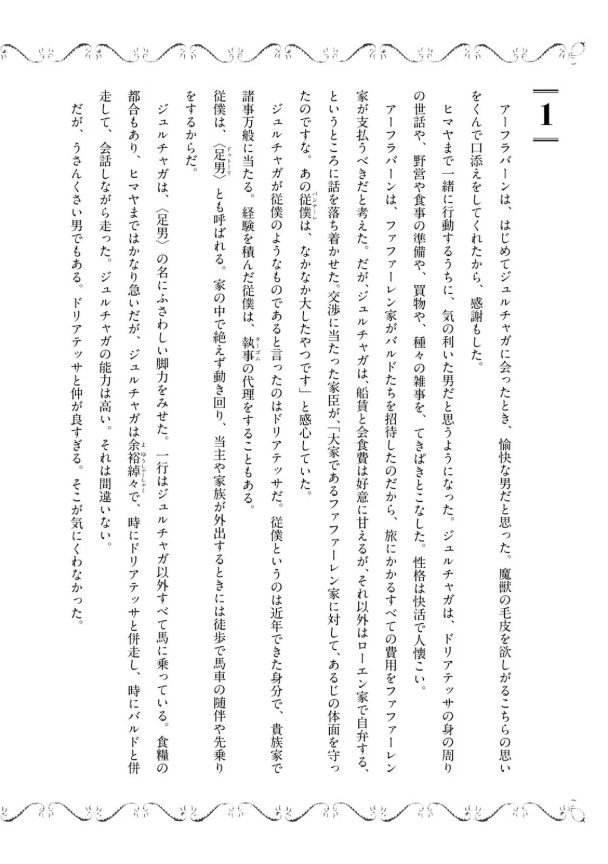 1
アーフラバーンは、はじめてジュルチャガに会ったとき、愉快な男だと思った。魔獣の毛皮を欲しがるこちらの思い
をくんで口添えをしてくれたから、感謝もした。
ヒマヤまで一緒に行動するうちに、気の利いた男だと思うようになった。ジュルチャガは、ドリアテッサの身の周り
の世話や、野営や食事の準備や、買物や、種々の雑事を、てきぱきとこなした。性格は快活で人懐こい。
アーフラバーンは、ファファーレン家がバルドたちを招待したのだから、旅にかかるすべての費用をファファーレン
家が支払うべきだと考えた。だが、ジュルチャガは、船賃と会食費は好意に甘えるが、それ以外はローエン家で自弁する、
というところに話を落ち着かせた。交渉に当たった家臣が、「大家であるファファーレン家に対して、あるじの体面を守っ
たのですな。あの従僕は、なかなか大したやつです」と感心していた。
ジュルチャガが従僕のようなものであると言ったのはドリアテッサだ。従僕というのは近年できた身分で、貴族家で
諸事万般に当たる。経験を積んだ従僕は、執事の代理をすることもある。
従僕は、〈足男〉とも呼ばれる。家の中で絶えず動き回り、当主や家族が外出するときには徒歩で馬車の随伴や先乗り
をするからだ。
ジュルチャガは、〈足男〉の名にふさわしい脚力をみせた。一行はジュルチャガ以外すべて馬に乗っている。食糧の
都合もあり、ヒマヤまではかなり急いだが、ジュルチャガは余裕綽々で、時にドリアテッサと併走し、時にバルドと併
走して、会話しながら走った。ジュルチャガの能力は高い。それは間違いない。
だが、うさんくさい男でもある。ドリアテッサと仲が良すぎる。そこが気にくわなかった。